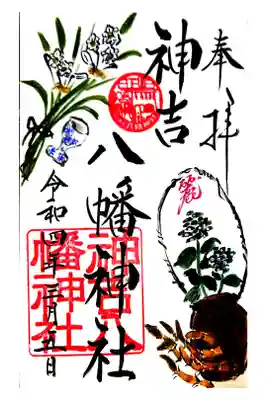 奉拝
麗
神吉
八幡神社
神吉八
幡神社
令和四年三月五日